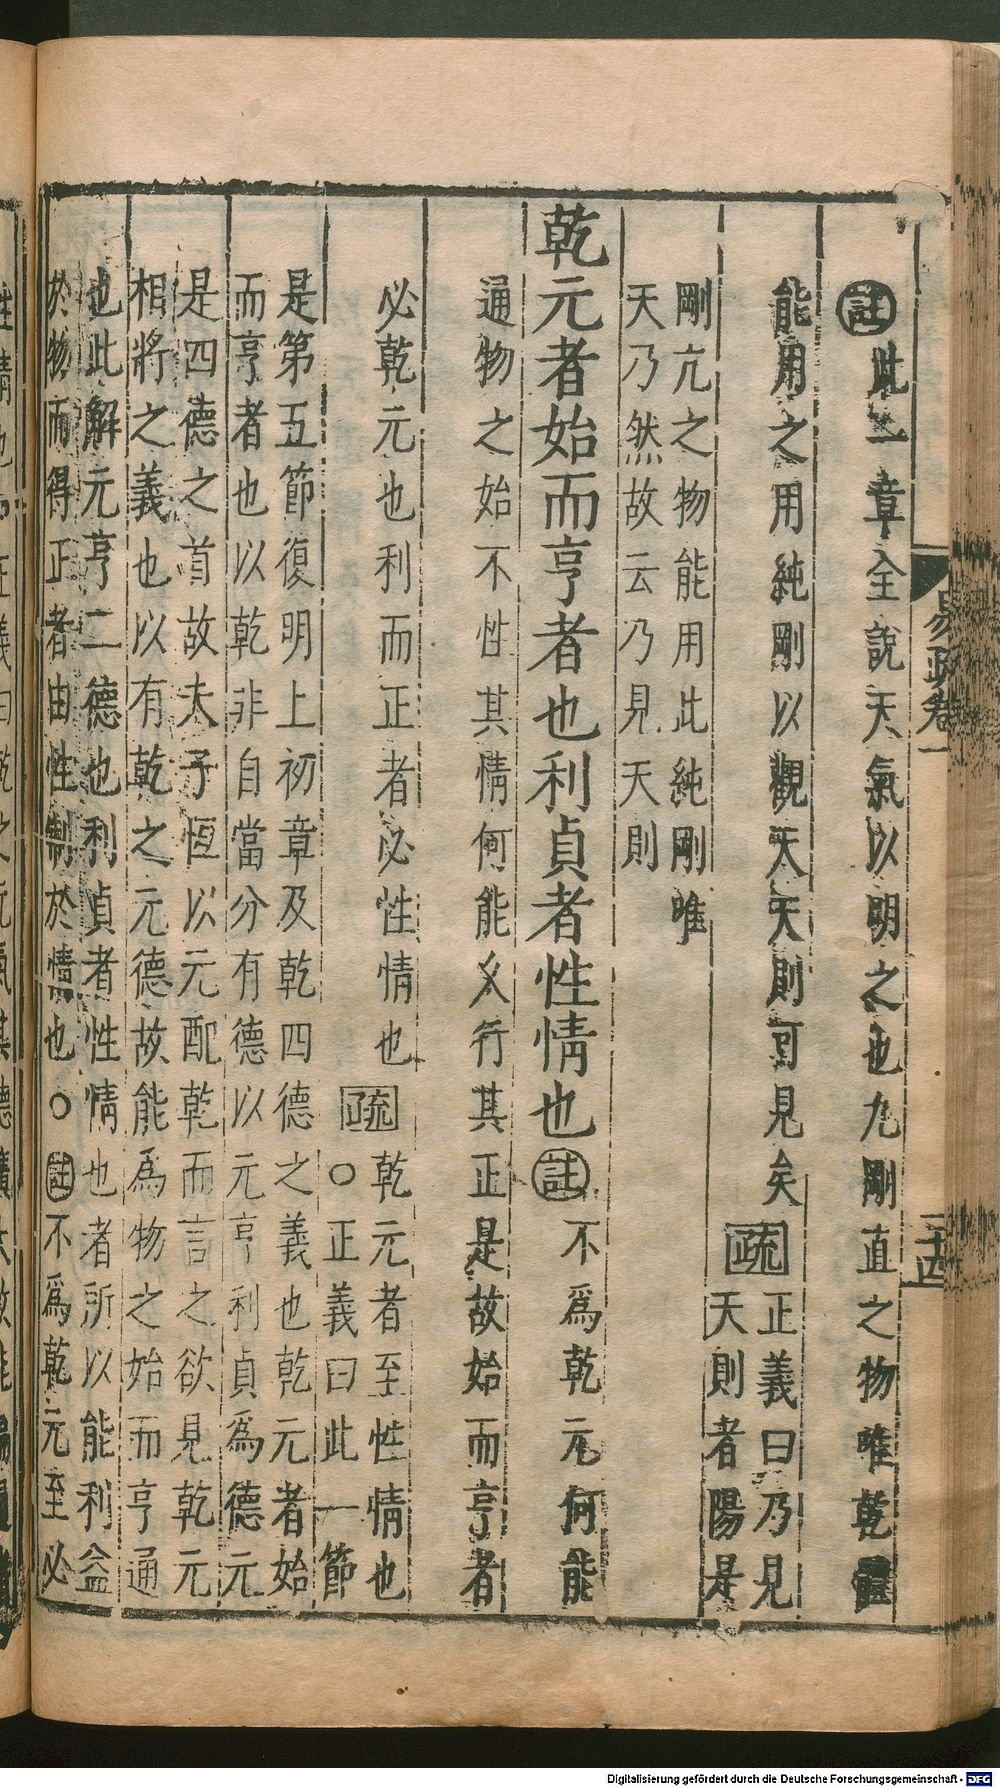 易疏卷一
二十四
註此一章全說天氣以明之也九剛直之物唯乾體
能用之用純剛以觀天天則可見矣疏正義曰乃見
天則者陽是
剛亢之物能用此純剛唯
天乃然故云乃見天則
乾元者始而亨者也利貞者性情也註不爲乾元何能
通物之始不性其情何能久行其正是故始而亨者
必乾元也利而正者必性情也疏乾元者至性情也
○正義曰此一節
是第五節復明上初章及乾四德之義也乾元者始
而亨者也以乾非自當分有德以元亨利貞爲德元
是四德之首故夫子恆以元配乾而言之欲見乾元
相將之義也以有乾之元德故能爲物之始而亨通
也此解元亨二德也利貞者性情也者所以能利益
於物而得正者由性制於情也○註不爲乾元至必
Digitalisierung gefördert durch die Deutsche Forschungsgemeinschaft - DFG